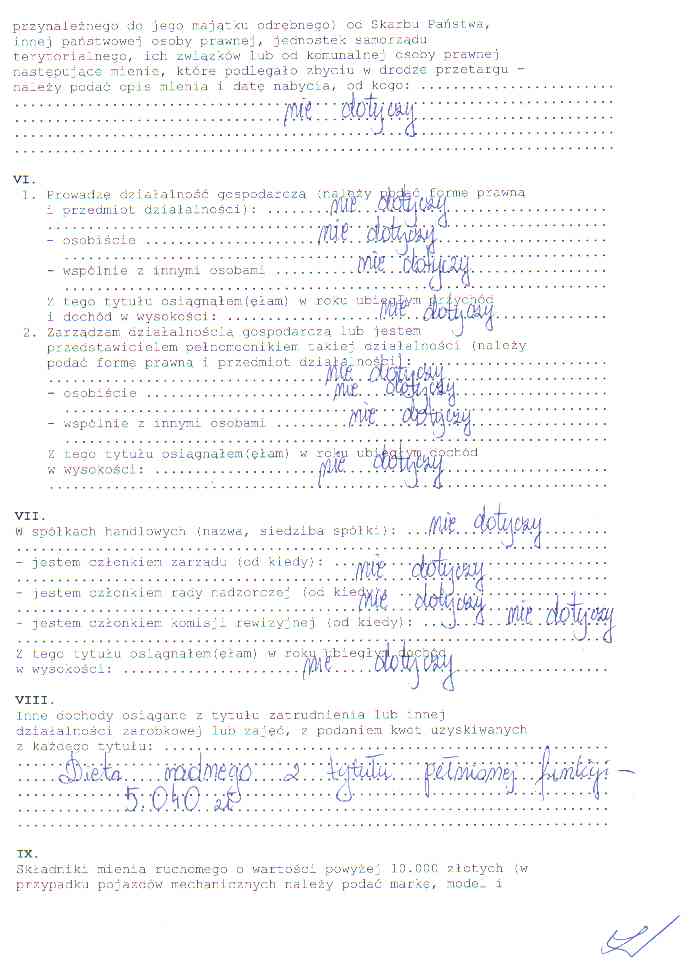 przynależnego do jego majątku odrębnego) od Skarbu Państwa,
innej państwowej osoby prawnej, jednostek samorządu
terytorialnego, ich związków lub od komunalnej osoby prawnej
następujące mienie, które podlegało zbyciu w drodze przetargu –
należy podać opis mienia i datę nabycia, od kogo: ..........................
nie dotyczy
VI.
1. Prowadzę działalność gospodarczą (należy podać formę prawną
i przedmiot działalności): ........ nie dotyczy
- osobiście .......... nie dotyczy
- wspólnie z innymi osobami .......... nie dotyczy
Z tego tytułu osiągnąłem(ęłam) w roku ubiegłym przychód
i dochód w wysokości: .......... nie dotyczy
2. Zarządzam działalnością gospodarczą lub jestem
przedstawicielem pełnomocnikiem takiej działalności (należy
podać formę prawną i przedmiot działalności):
nie dotyczy
- osobiście .......... nie dotyczy
- wspólnie z innymi osobami .......... nie dotyczy
Z tego tytułu osiągnąłem(ęłam) w roku ubiegłym dochód
w wysokości: .......... nie dotyczy
VII.
W spółkach handlowych (nazwa, siedziba spółki): ... nie dotyczy
- jestem członkiem zarządu (od kiedy): ... nie dotyczy
- jestem członkiem rady nadzorczej (od kiedy): nie dotyczy
- jestem członkiem komisji rewizyjnej (od kiedy): ...... nie dotyczy
Z tego tytułu osiągnąłem(ęłam) w roku ubiegłym dochód
w wysokości: .......... nie dotyczy
VIII.
Inne dochody osiągane z tytułu zatrudnienia lub innej
działalności zarobkowej lub zajęć, z podaniem kwot uzyskiwanych
z każdego tytułu: ..........
Dieta radnego z tytułu pełnionej funkcji –
5.040 zł
IX.
Składniki mienia ruchomego o wartości powyżej 10.000 złotych (w
przypadku pojazdów mechanicznych należy podać markę, model i